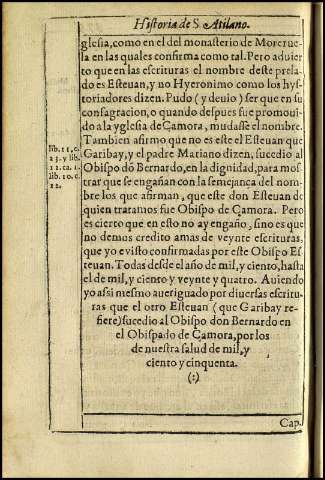 Historia de S. Atilano.
glesia, como en el del monasterio de Moreruela
en las quales confirma como tal. Pero aduier
to que en las escrituras el nombre deste prela-
do es Esteuan, y no Hyeronimo como los hys-
toriadores dizen. Pudo (y deuio) ser que en su
consagracion, o quando despues fue promoui-
do a la yglesia de Çamora, mudasse el nombre.
Tambien afirmo que no es este el Esteuan que
Garibay, y el padre Mariano dizen, sucedio al
Obispo dō Bernardo, en la dignidad, para mos
trar que se engañan con la semejança del nom-
bre los que afirman, que este don Esteuan de
quien tratamos fue Obispo de Çamora. Pero
es cierto que en esto no ay engaño, sino es que
no demos credito a mas de veynte escrituras,
que yo e visto confirmadas por este Obispo Es
teuan. Todas desde el año de mil, y ciento, hasta
el de mil, y ciento y veynte y quatro. Auiendo
yo assi mesmo aueriguado por diuersas escritu-
ras que el otro Esteuan (que Garibay re-
fiere) sucedio al Obispo don Bernardo en
el Obispado de Çamora, por los
de nuestra salud de mil, y
ciento y cinquenta.
(:)
Cap.
lib. 11, c.
23. y lib.
12. ca. 1.
lib. 10. c.
12.